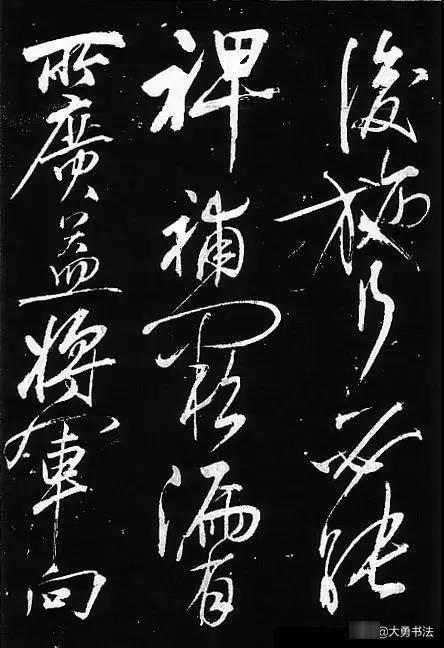 後施行必能
裨補闕漏有
所廣益將軍向
@大勇书法